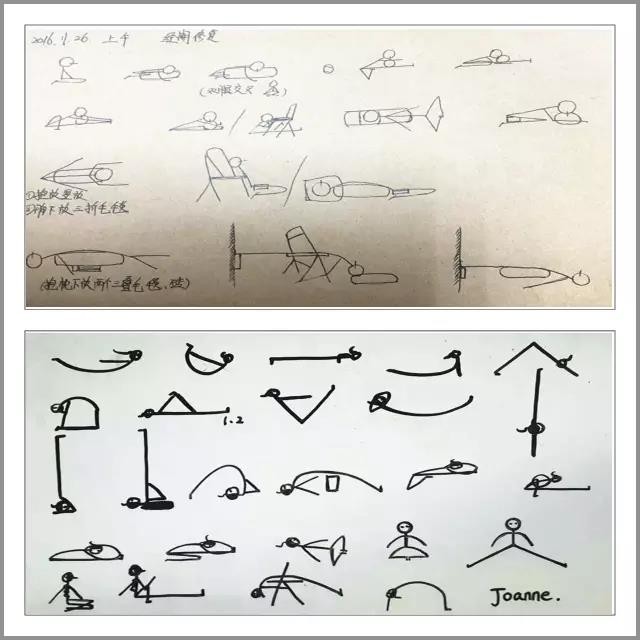 2016.1.26 上午
(双腿交叉 )
①抱枕竖放
②肩下放三折毛毯
(抱枕下放两个三叠毛毯、砖)
1.2
Joanne.